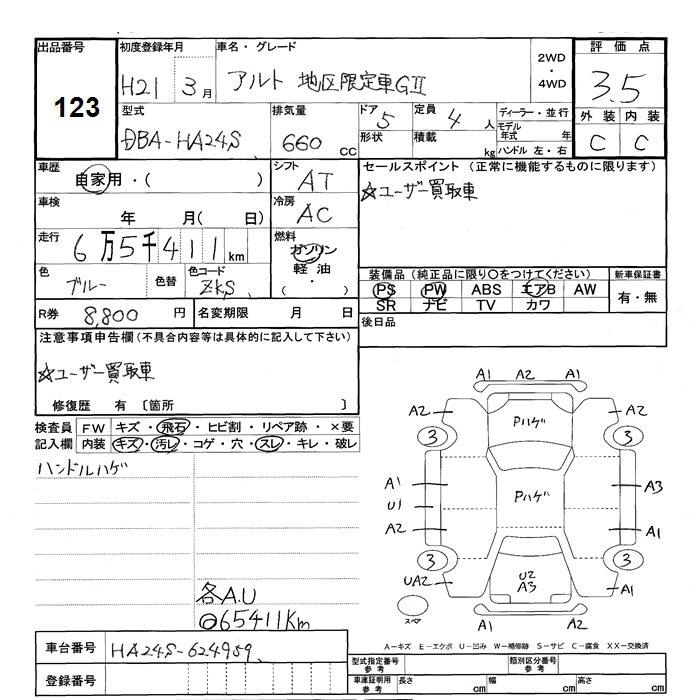 出品番号 初度登録年月 車名・グレード 評価点
123 H21 3月 アルト 地区限定車GⅡ 2WD・4WD 3.5
型式 排気量 ドア 5 定員 4人 ディーラー・並行 外装 内装
DBA-HA24S 660cc 形状 積載 kg モデル年式 年 C C
ハンドル 左・右
車歴 シフト セールスポイント(正常に機能するものに限ります)
自家用・( ) AT ☆ユーザー買取車
車検 冷房
年 月( 日) AC
走行 燃料
6万5千411km ガソリン
軽油
・
( )
色 色替 色コード 装備品(純正品に限り○をつけてください) 新車保証書
ブルー ZKS PS PW ABS エアB AW 有・無
SR ナビ TV カワ
R券 8,800円 名変期限 月 日 後日品
注意事項申告欄(不具合内容等は具体的に記入して下さい)
☆ユーザー買取車
修復歴 有〔箇所 〕
検査員 FW キズ・飛石・ヒビ割・リペア跡・×要
記入欄 内装 キズ・汚レ・コゲ・穴・スレ・キレ・破レ
ハンドルハゲ
各A.U
◎65411Km
A1 A2 A1
A2 Pハゲ A2
3 3
A1 Pハゲ A3
U1
A2 A1
3 3
UA2 U2 A3 A1
スペア A2 A1
A-キズ E-エクボ U-凹み W-補修跡 S-サビ C-腐食 XX-交換済
車台番号 HA24S-624959
登録番号
型式指定番号 参考 類別区分番号 参考
車庫証明用 参考 長さ cm 幅 cm 高さ cm